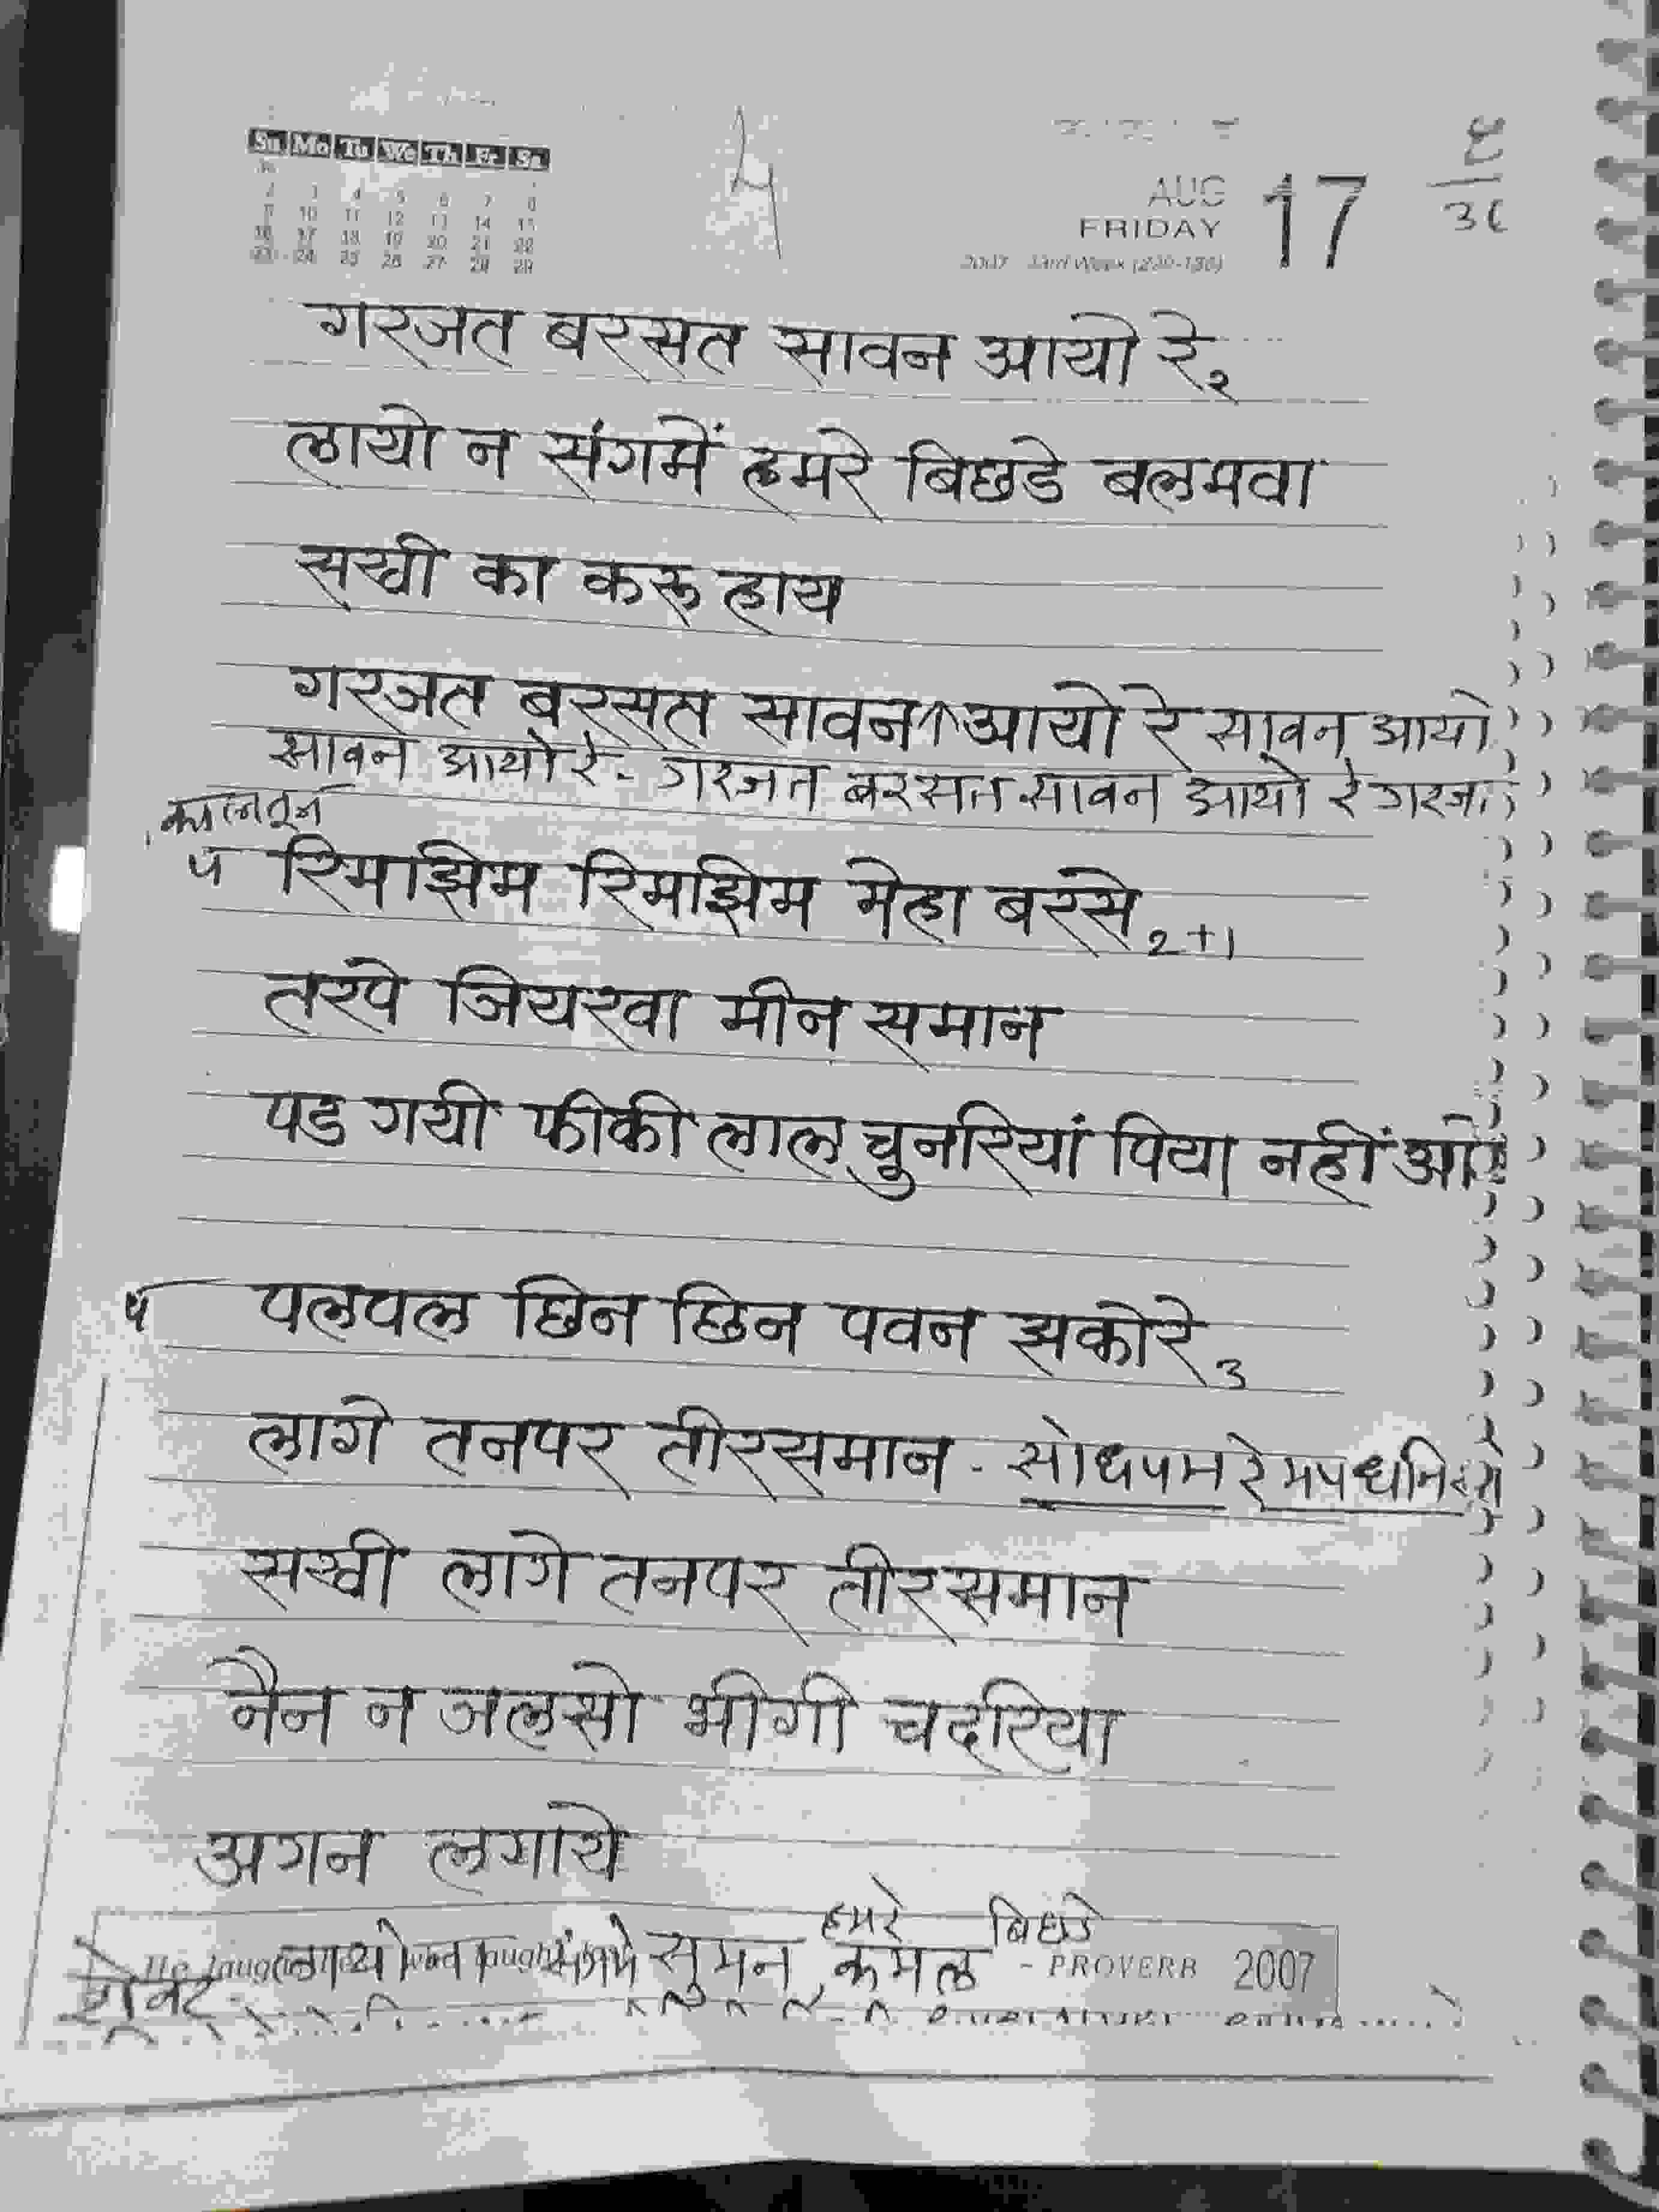 Su Mo Tu We Th Fr Sa
2 3 4 5 6 7 8
9 10 11 12 13 14 15
16 17 18 19 20 21 22
23 24 25 26 27 28 29
AUG 17
FRIDAY
2007 33rd Week
गरजत बरसत सावन आयो रे २
लायो न संगमें हमरे बिछडे बलमवा
सखी का करू हाय
गरजत बरसत सावन आयो रे सावन आयो
सावन आयो रे - गरजत बरसत सावन आयो रे गरज
प रिमझिम रिमझिम मेहा बरसे 2+1
तरपे जियरवा मीन समान
पड गयी फीकी लाल चुनरियां पिया नहीं
प पलपल छिन छिन पवन झकोरे 3
लागे तनपर तीरसमान - सांधपम रे मपधनि
सखी लागे तनपर तीरसमान
नैन न जलसो भीगी चदरिया
अगन लगाये
हमरे बिछडे
लायो न संगमे सुमन, कमल - PROVERB 2007
शेवट